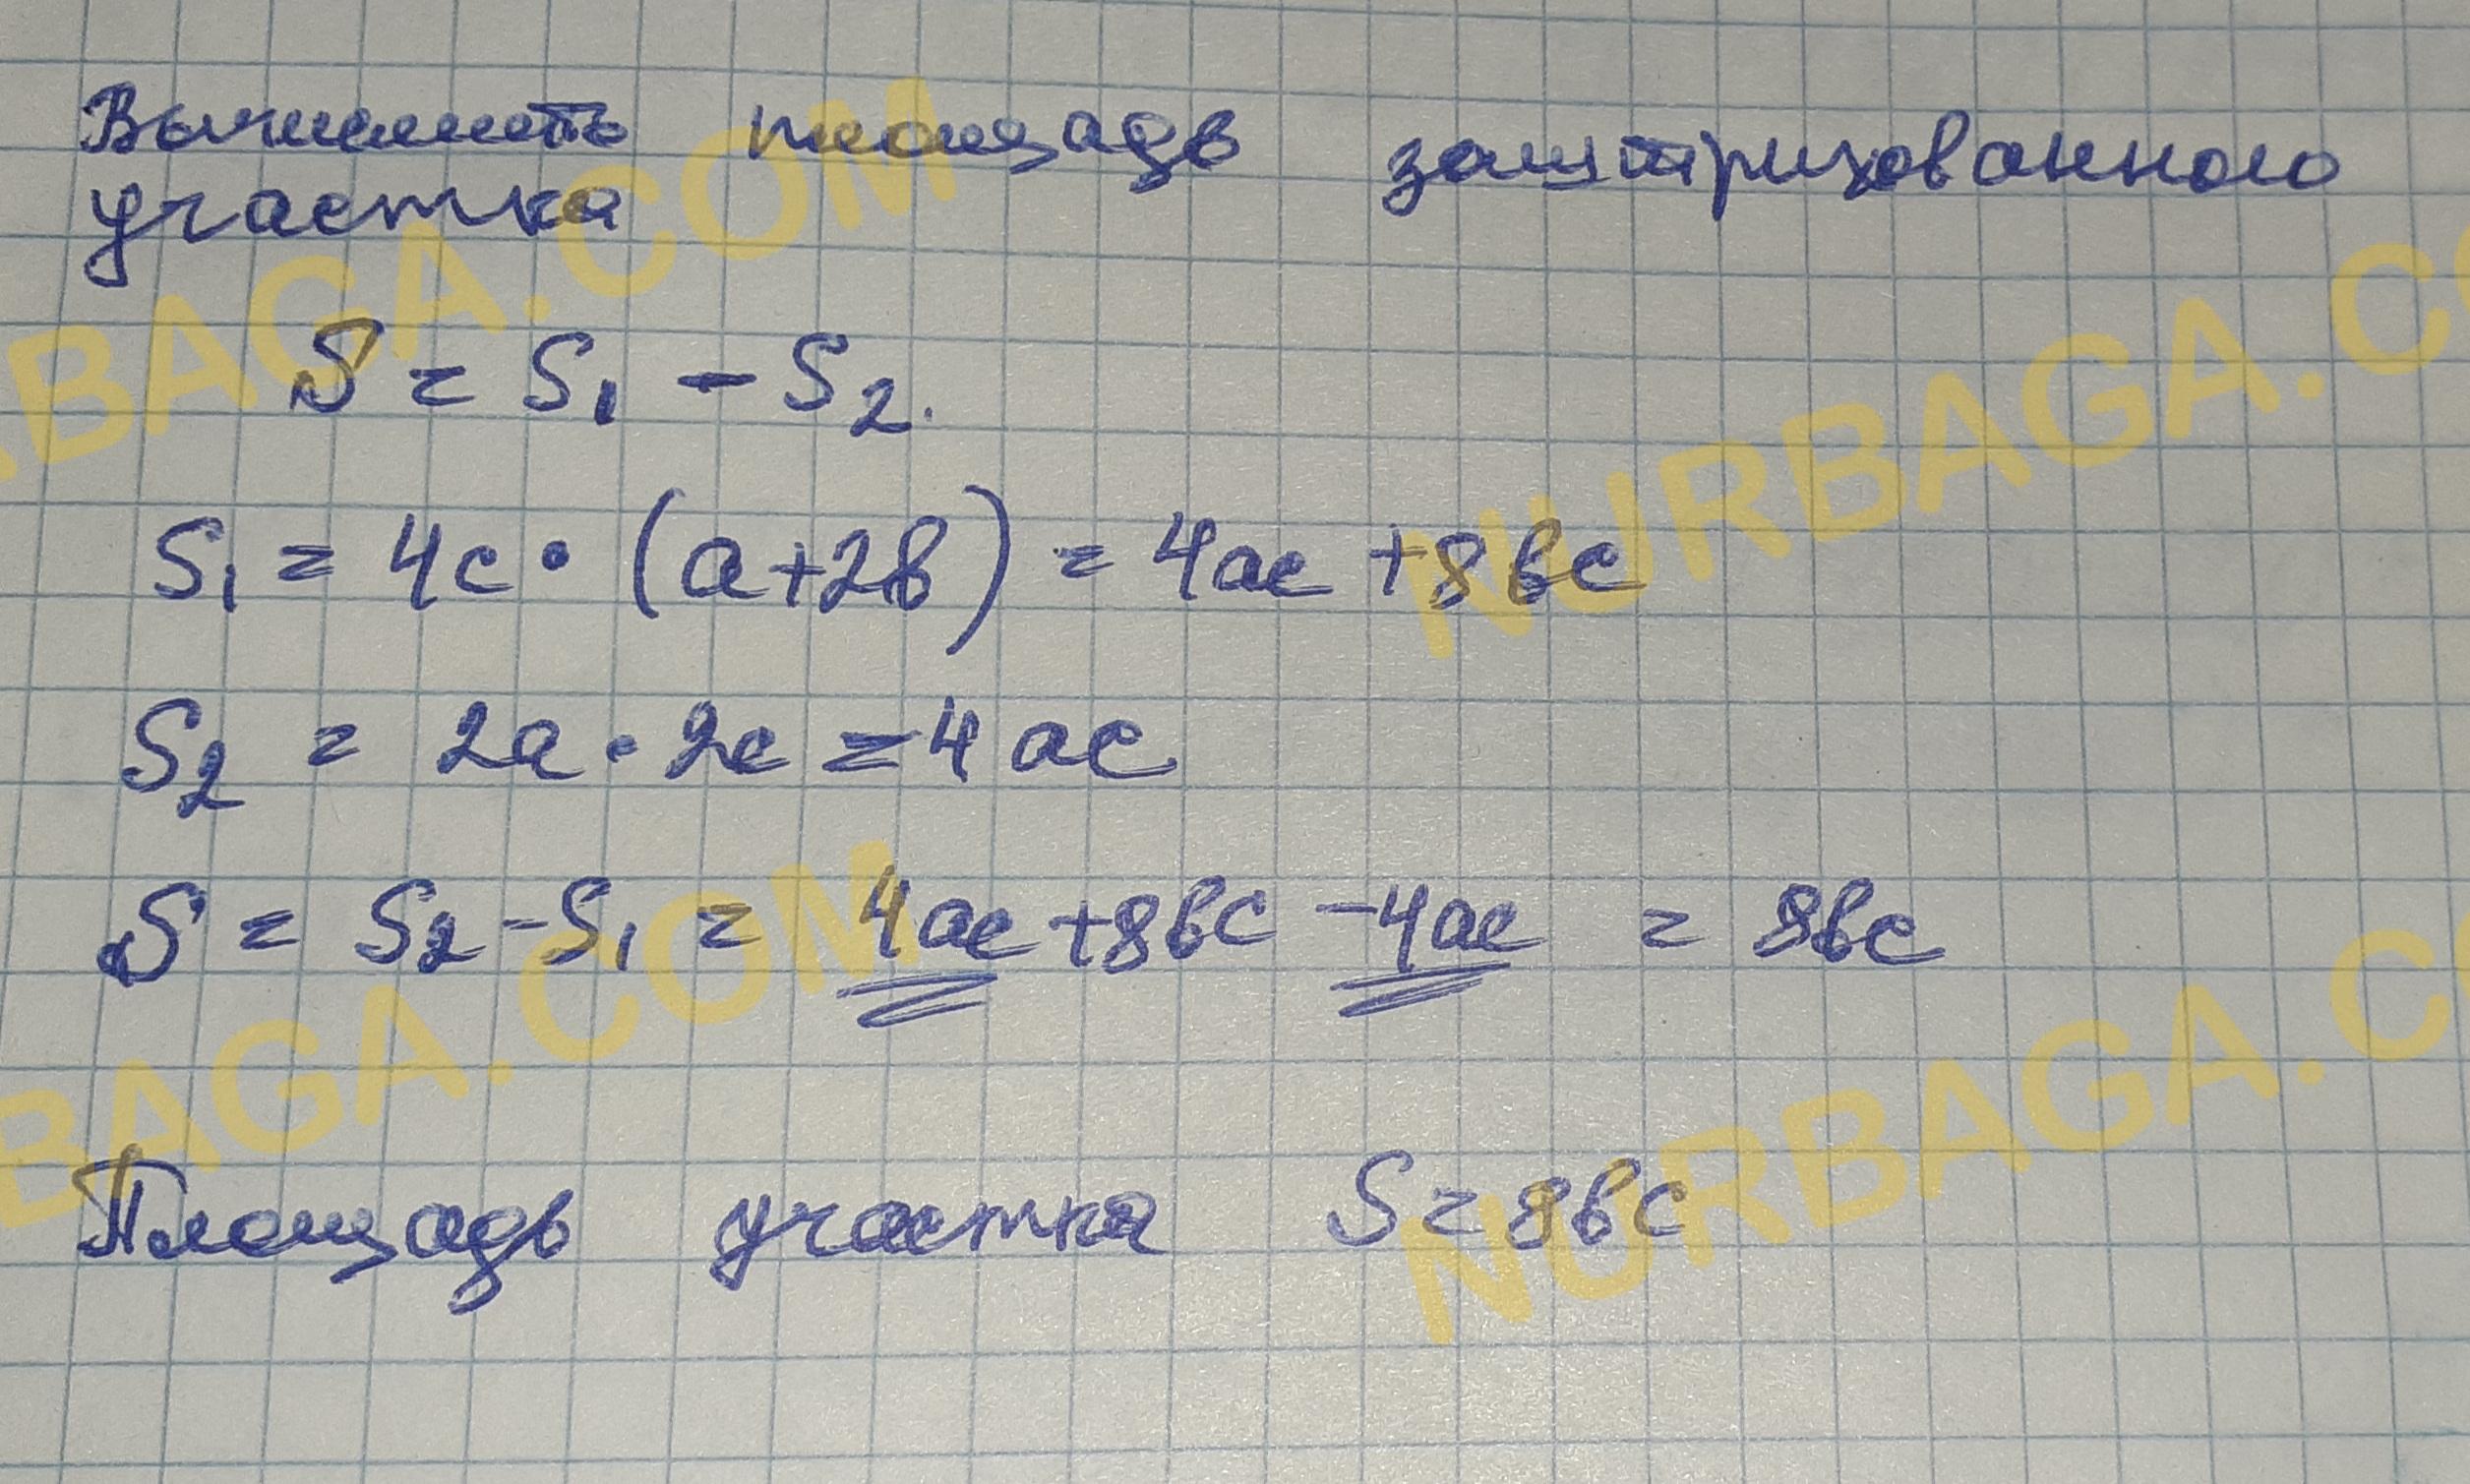 Вычислить площадь заштрихованного
участка
S = S₁ - S₂.
S₁ = 4c • (a+2b) = 4ac + 8bc
S₂ = 2a • 2c = 4ac
S = S₂ - S₁ = 4ac + 8bc - 4ac = 8bc
Площадь участка S = 8bc
NURBAGA.COM